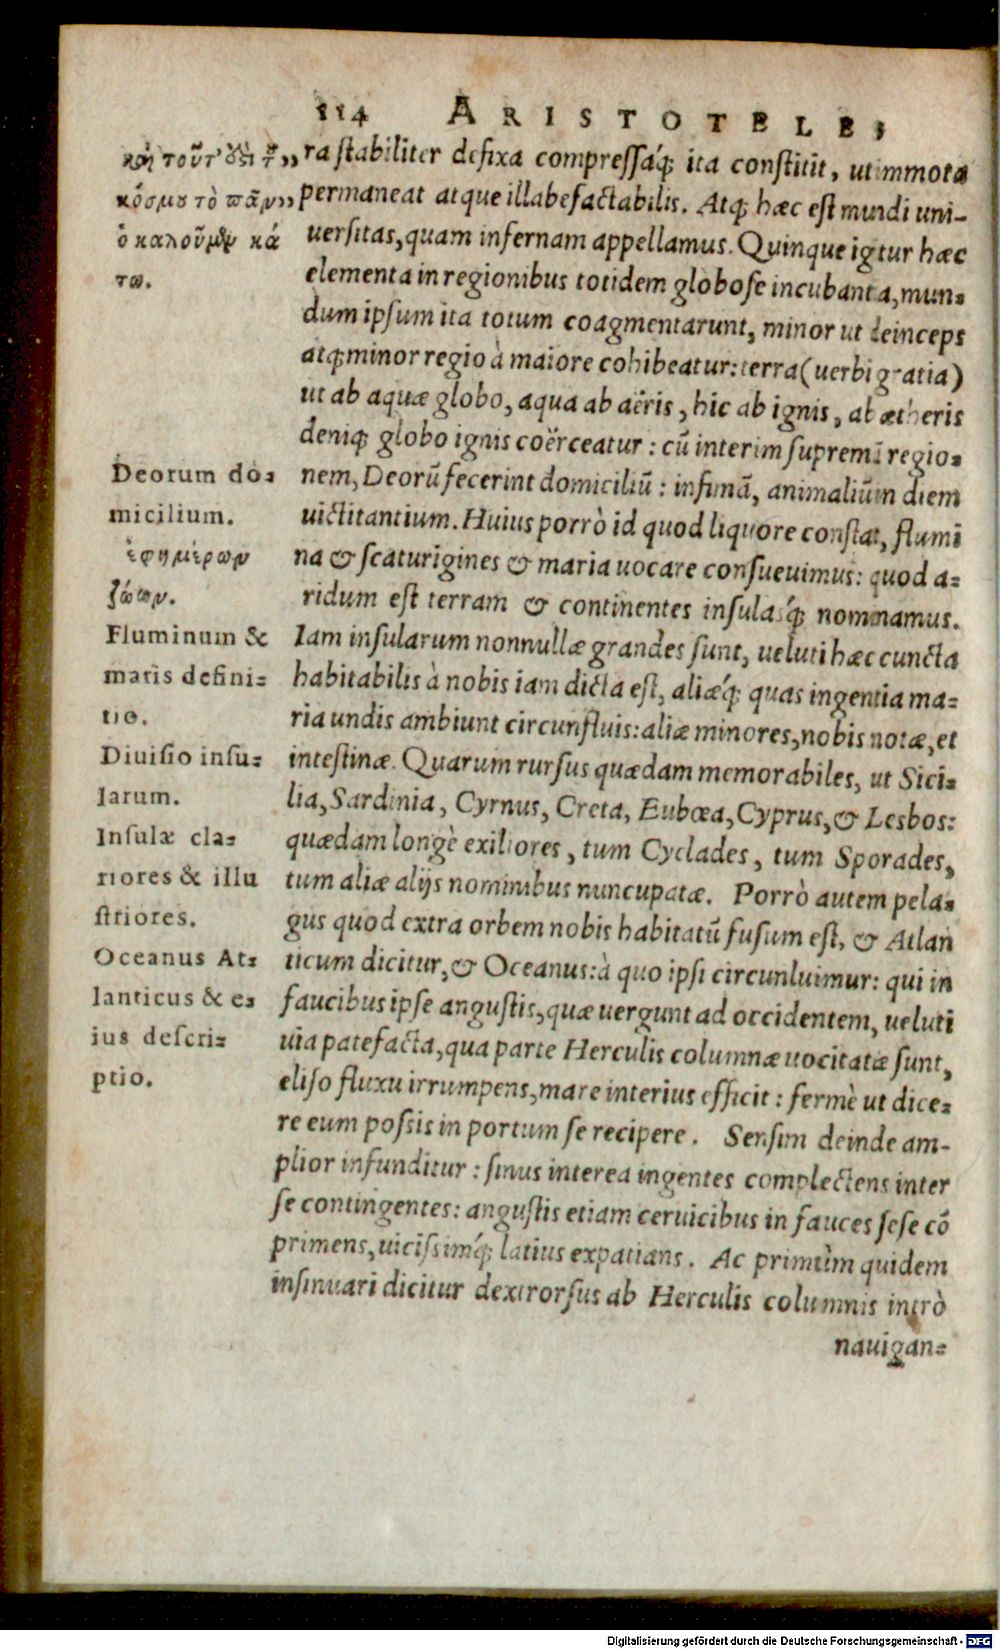 114 ARISTOTELES
καὶ τοῦτ' ἔστι τ῀
κόσμου τὸ πᾶν
ὃ καλοῦμεν κά
τω.
ra stabiliter defixa compressaq́; ita constitit, ut immota
permaneat atque illabefactabilis. Atq; hæc est mundi uni-
uersitas, quam infernam appellamus. Quinque igitur hæc
elementa in regionibus totidem globose incubantia, mun=
dum ipsum ita totum coagmentarunt, minor ut deinceps
atq; minor regio à maiore cohibeatur: terra (uerbi gratia)
ut ab aquæ globo, aqua ab aëris, hic ab ignis, ab ætheris
deniq; globo ignis coërceatur: cū interim supremā regio=
nem, Deorū fecerint domiciliū: infimā, animalium diem
uictitantium. Huius porrò id quod liquore constat, flumi
na & scaturigines & maria uocare consueuimus: quod a=
ridum est terram & continentes insulasq́; nominamus.
Iam insularum nonnullæ grandes sunt, ueluti hæc cuncta
habitabilis à nobis iam dicta est, aliæq́; quas ingentia ma=
ria undis ambiunt circunfluis: aliæ minores, nobis notæ, et
intestinæ. Quarum rursus quædam memorabiles, ut Sici=
lia, Sardinia, Cyrnus, Creta, Eubœa, Cyprus, & Lesbos:
quædam longè exiliores, tum Cyclades, tum Sporades,
tum aliæ alijs nominibus nuncupatæ. Porrò autem pela=
gus quod extra orbem nobis habitatū fusum est, & Atlan
ticum dicitur, & Oceanus: à quo ipsi circunluimur: qui in
faucibus ipse angustis, quæ uergunt ad occidentem, ueluti
uia patefacta, qua parte Herculis columnæ uocitatæ sunt,
eliso fluxu irrumpens, mare interius efficit: fermè ut dice=
re eum possis in portum se recipere. Sensim deinde am-
plior infunditur: sinus interea ingentes complectens inter
se contingentes: angustis etiam ceruicibus in fauces sese cō
primens, uicissimq́; latius expatians. Ac primùm quidem
insinuari dicitur dextrorsus ab Herculis columnis intrò
nauigan=
Deorum do=
micilium.
ἐφημέρων
ζώων.
Fluminum &
maris defini=
tio.
Diuisio insu=
larum.
Insulæ cla=
riores & illu
striores.
Oceanus At=
lanticus & e=
ius descri=
ptio.
Digitalisierung gefördert durch die Deutsche Forschungsgemeinschaft - DFG